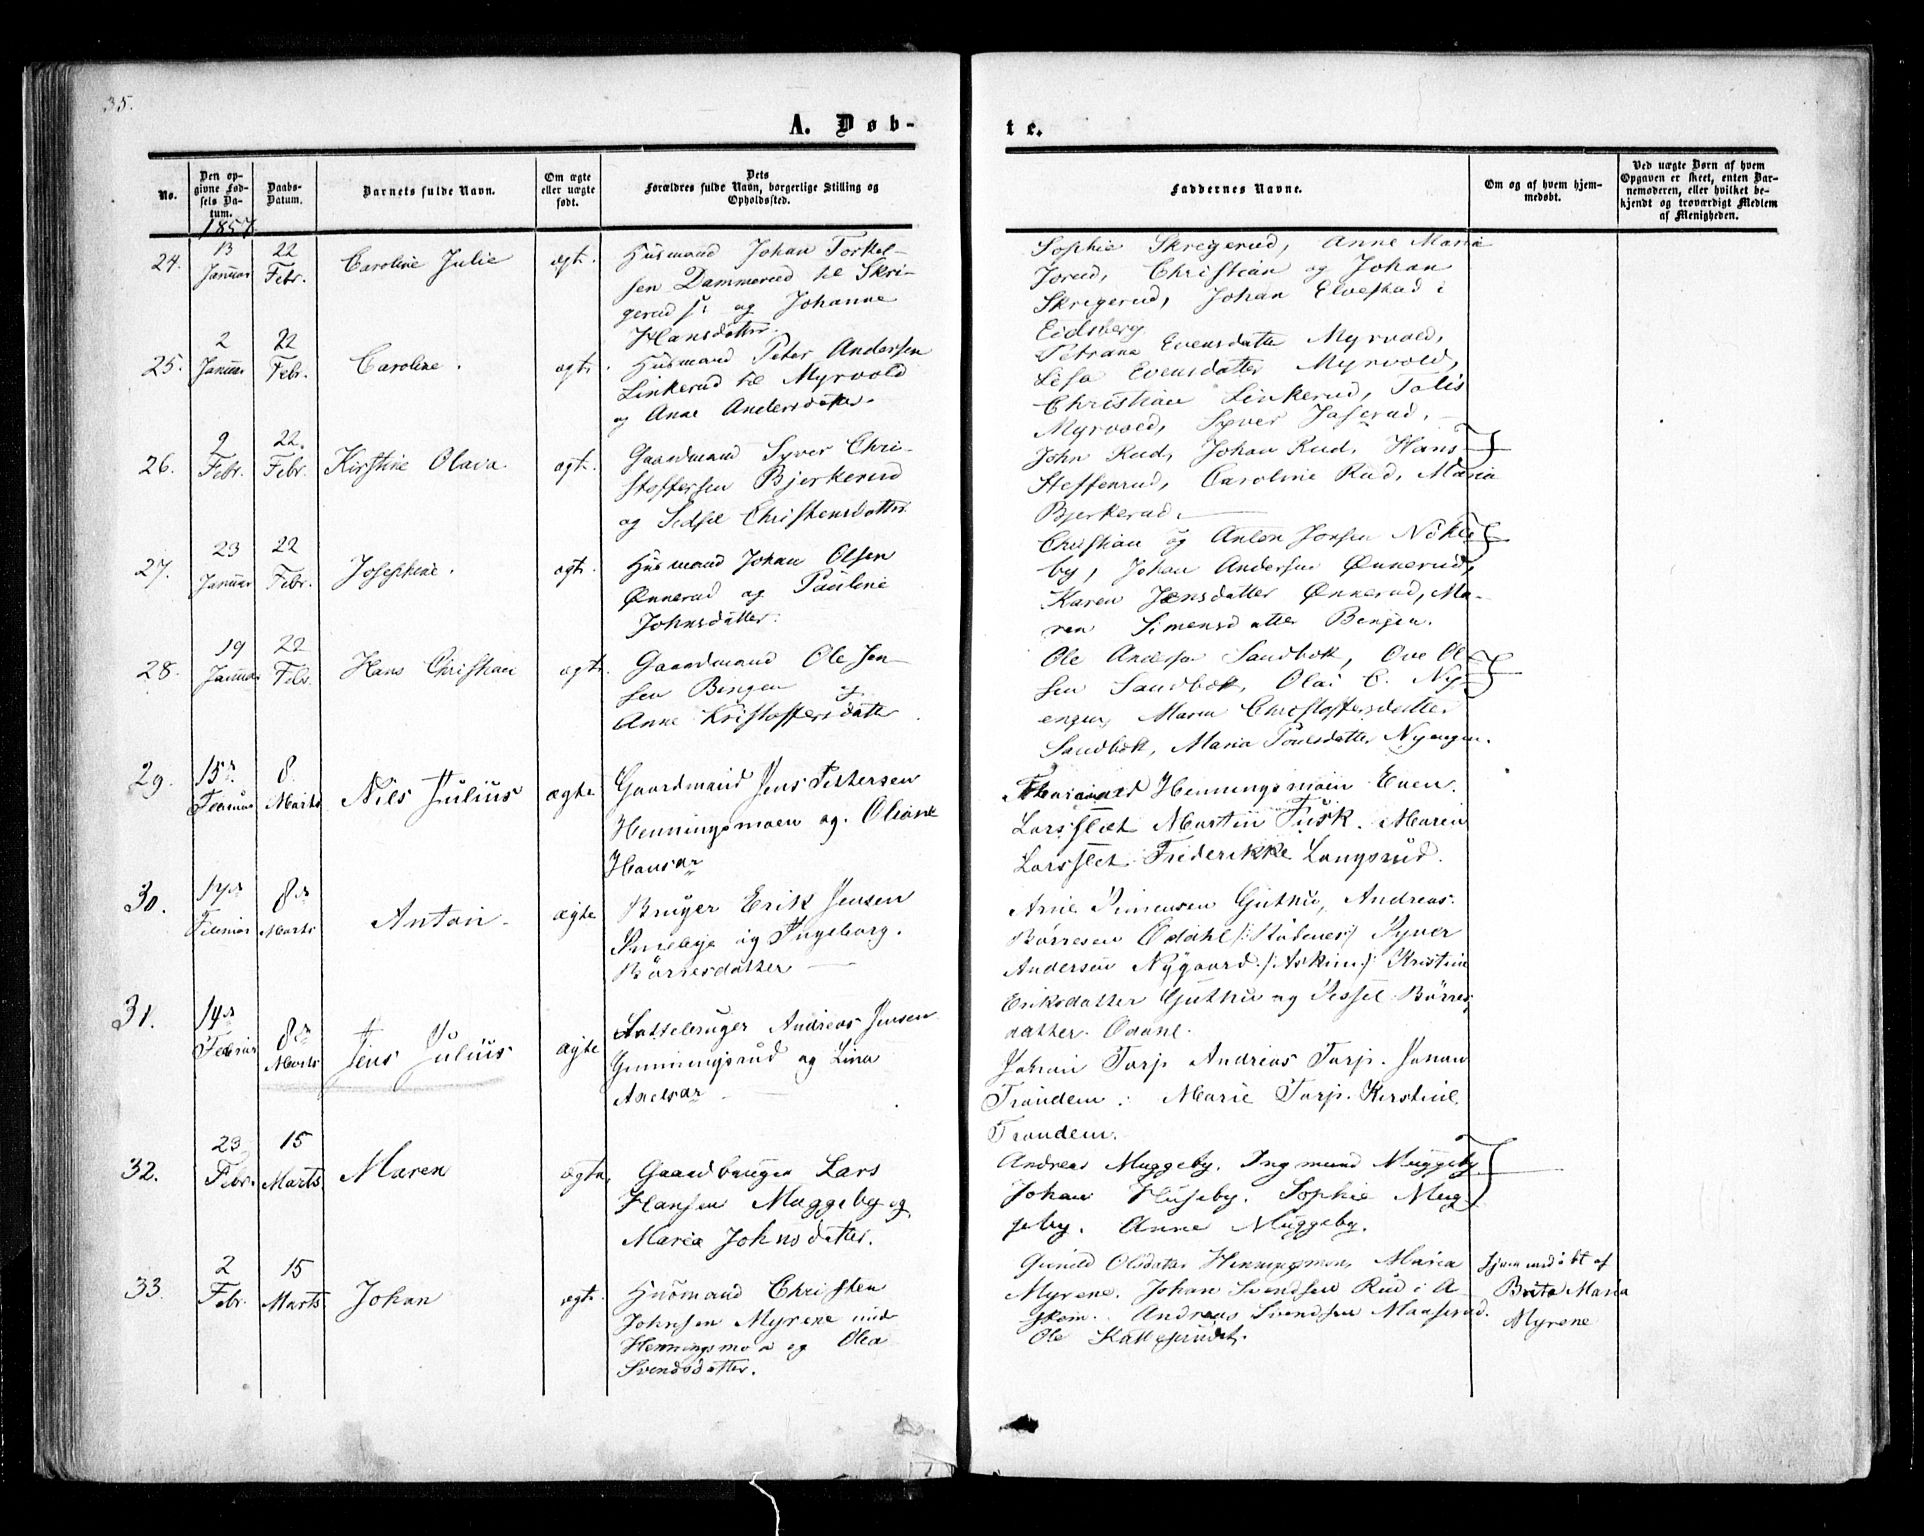 35.
A. Døb-
te.
No.
Den op-
givne Fød-
sels Da-
tum.
Daabs-
Datum.
Barnets fulde Navn.
Om ægte
eller uægte
født.
Dets
Forældres fulde Navn, borgerlige Stilling og
Opholdssted.
Faddernes Navne.
Om og af hvem hjem-
medøbt.
Ved uægte Børn af hvem
Opgaven er skeet, enten Bar-
nemoderen, eller hvilket be-
kjendt og troværdigt Medlem
af Menigheden.
1857.
24.
13
Januar
22
Febr.
Caroline Julie
ægt.
Husmand Johan Torkel-
sen Dammerud til Skri-
gerud og Johanne
Hansdatter.
Sophie Skregerud, Anne Maria
Jorud, Christian og Johan
Skregerud, Johan Elvestad i
Eidsberg.
25.
2
Januar
22
Febr.
Caroline.
ægt.
Husmand Peter Andersen
Linkerud til Myrvold
og Anne Andersdatter.
Petrana Evensdatter Myrvold,
Lisa Evensdatter Myrvold,
Christian Linkerud, Tolis
Myrvold, Syver
26.
9
Febr.
22.
Febr.
Kirstine Olava.
ægt.
Gaardmand Syver Chri-
stoffersen Bjerkerud
og Sidsel Christensdatter
John Rud, Johan Rud, Hans
Steffenrud, Caroline Rud, Maria
Bjerkerud.
27.
23
Januar
22
Febr.
Josephine.
ægt.
Husmand Johan Olsen
Ønnerud og Pauline
Johnsdatter.
Christian og Anton Jonsen Nøkle-
by, Johan Andersen Ønnerud,
Karen Jensdatter Ønnerud, Ma-
ren Simensdatter Bengen.
28.
19
Januar
22
Febr.
Hans Christian
ægt.
Gaardmand Ole Jen-
sen Bengen og
Anne Kristoffersdatter
Ole Andersen Sandbæk, Ove Ol-
sen Sandbæk, Olai C. Ny-
engen, Maren Christoffersdatter
Sandbæk, Maria Poulsdatter Nyengen.
29.
15de
8
Marts
Nils Julius
ægte
Gaardmand Jens Pettersen
Henningsmoen og Oliane
Hansdr
Henningsmoen Even
Larsslet Martin Tusk. Maren
Larsslet Frederikke Langsrud.
30.
14de
Februar
8de
Marts
Anton
ægte
Bruger Erik Jensen
og Ingeborg.
Børresdatter
Arne Simensen Guthu, Andreas
Børresen Ødahl Syver
Andersen Nygaard /:Askim:/ Kristine
Eriksdatter Guthu og Sissel Børres-
datter Ødahl.
31.
14de
Februar
8de
Marts
Jens Julius
ægte
Andreas Jensen
Gunningsrud og Lina
Axelsdr
Johan Torp Andreas Torp. Johan
Trandem. Marie Torp. Kirstine
Trandem.
32.
23
Febr.
15
Marts
Maren
ægte,
Gaardbruger Lars
Hansen Muggeby og
Maria Johnsdatter.
Andreas Muggeby, Ingmund Muggeby
Johan Huseby. Sophie Mug-
geby. Anne Muggeby.
33.
2
Febr.
15
Marts
Johan
ægt.
Husmand Christen
Johnsen Myrene und.
Henningsmo og Olea
Svendsdatter.
Gunild Olsdatter Henningsmoen, Maria
Myrene. Johan Svendsen Rud i A-
skim. Andreas Svendsen
Ole
Hjemmedøbt af
Brita Maria
Myrene